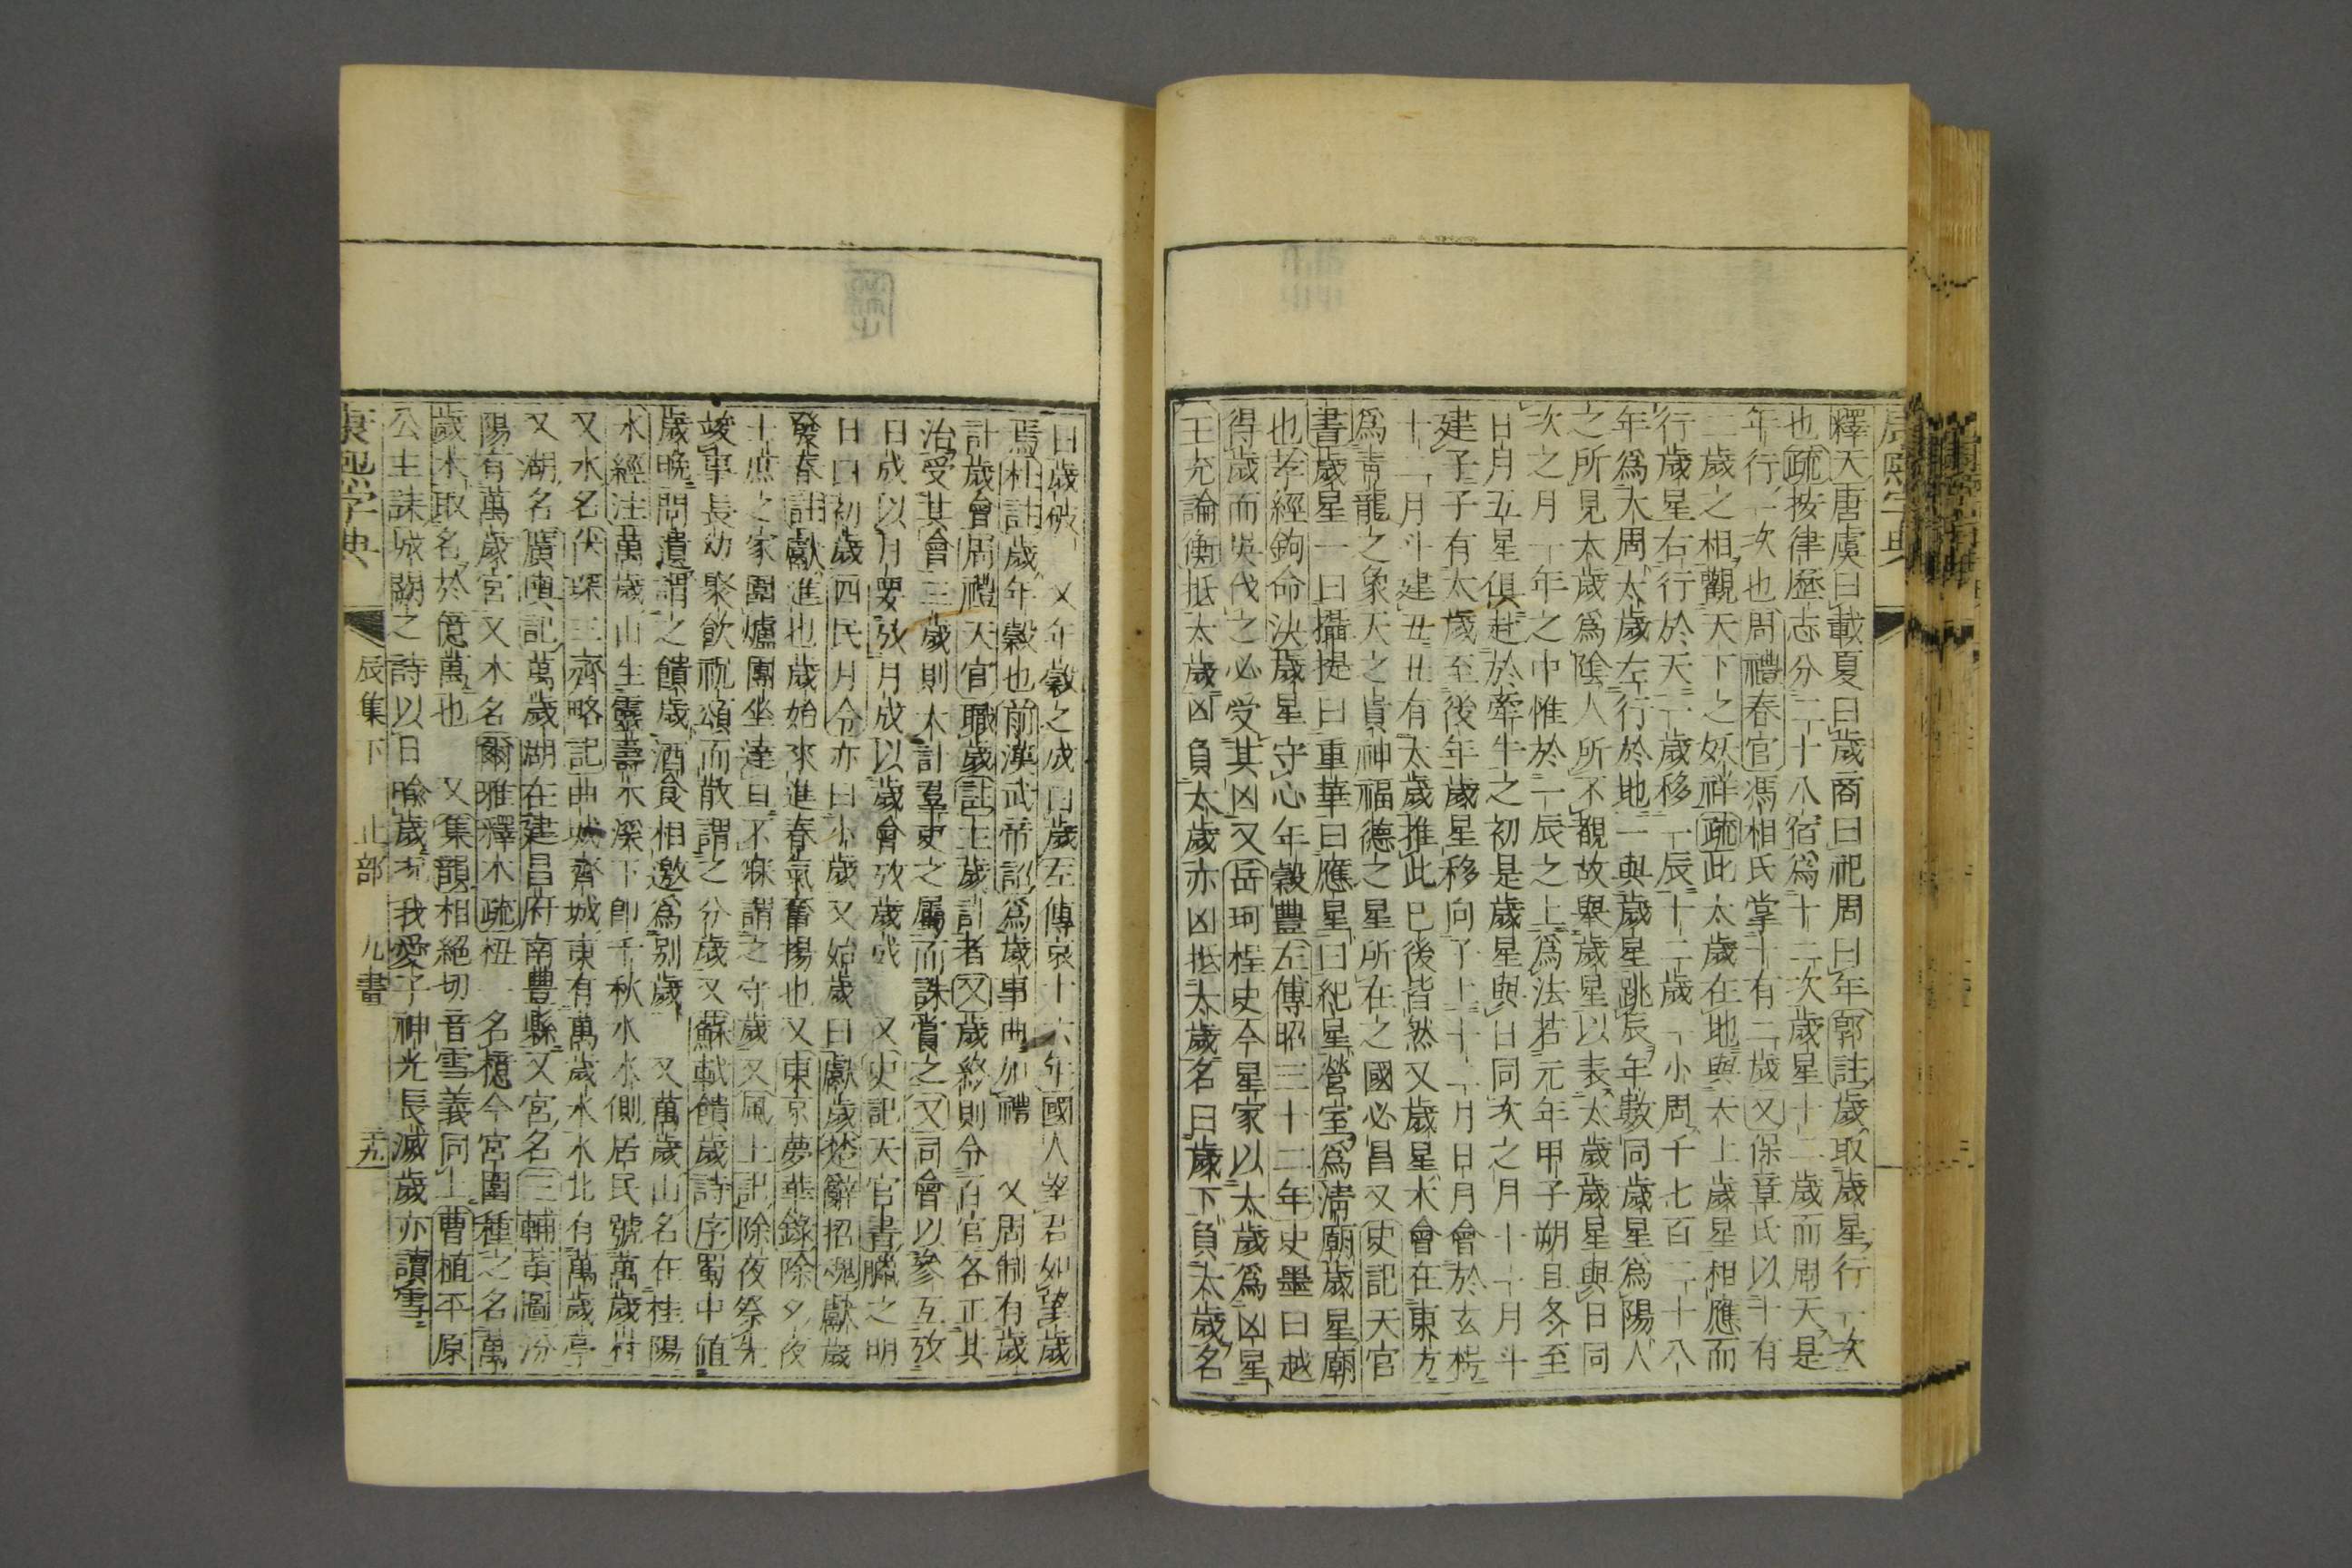 康熙字典
釋天唐虞曰載夏曰歲商曰祀周曰年郭註歲取歲星行一次
也疏按律歷志分二十八宿爲十二次歲星十二歲而周天是
年行一次也周禮春官馮相氏掌十有二歲又保章氏以十有
二歲之相觀天下之妖祥疏此太歲在地與天上歲星相應而
行歲星右行於天一歲移一辰十二歲一小周千七百二十八
年爲大周太歲左行於地一與歲星跳辰年數同歲星爲陽人
之所見太歲爲陰人所不覩故舉歲星以表太歲歲星與日同
次之月一年之中惟於一辰之上爲法若元年甲子朔旦冬至
日月五星俱赴於牽牛之初是歲星與日同次之月十一月斗
建子子有太歲至後年歲星移向子上十二月日月會於玄枵
十二月斗建丑丑有太歲推此已後皆然又歲星木會在東方
爲靑龍之象天之貴神福德之星所在之國必昌又史記天官
書歲星一曰攝提曰重華曰應星曰紀星營室爲淸廟歲星廟
也孝經鉤命決歲星守心年穀豐左傳昭三十二年史墨曰越
得歲而吳伐之必受其凶又岳珂桯史今星家以太歲爲凶星
王充論衡抵太歲凶負太歲亦凶抵太歲名曰歲下負太歲名
曰歲破 又年穀之成曰歲左傳哀十六年國人望君如望歲
焉杜註歲年穀也前漢武帝詔爲歲事曲加禮 又周制有歲
計歲會周禮天官職歲註主歲計者又歲終則令百官各正其
治受其會三歲則大計羣吏之屬而誅賞之又司會以參互攷
日成以月要攷月成以歲會攷歲成 又史記天官書臘之明
日曰初歲四民月令亦曰小歲又始歲曰獻歲楚辭招魂獻歲
發春註獻進也歲始來進春氣奮揚也又東京夢華錄除夕夜
士庶之家圍爐團坐達旦不寐謂之守歲又風土記除夜祭先
竣事長幼聚飲祝頌而散謂之分歲又蘇軾饋歲詩序蜀中值
歲晚問遺謂之饋歲酒食相邀爲別歲 又萬歲山名在桂陽
水經注萬歲山生靈壽木溪下卽千秋水水側居民號萬歲村
又水名伏琛三齊略記曲城齊城東有萬歲水水北有萬歲亭
又湖名廣輿記萬歲湖在建昌府南豐縣又宮名三輔黃圖汾
陽有萬歲宮又木名爾雅釋木疏杻一名檍今宮園種之名萬
歲木取名於億萬也 又集韻相絕切音雪義同上曹植平原
公主誄城闕之詩以日喻歲況我愛子神光長滅歲亦讀雪
康熙字典 辰集下 止部 九畫 二九